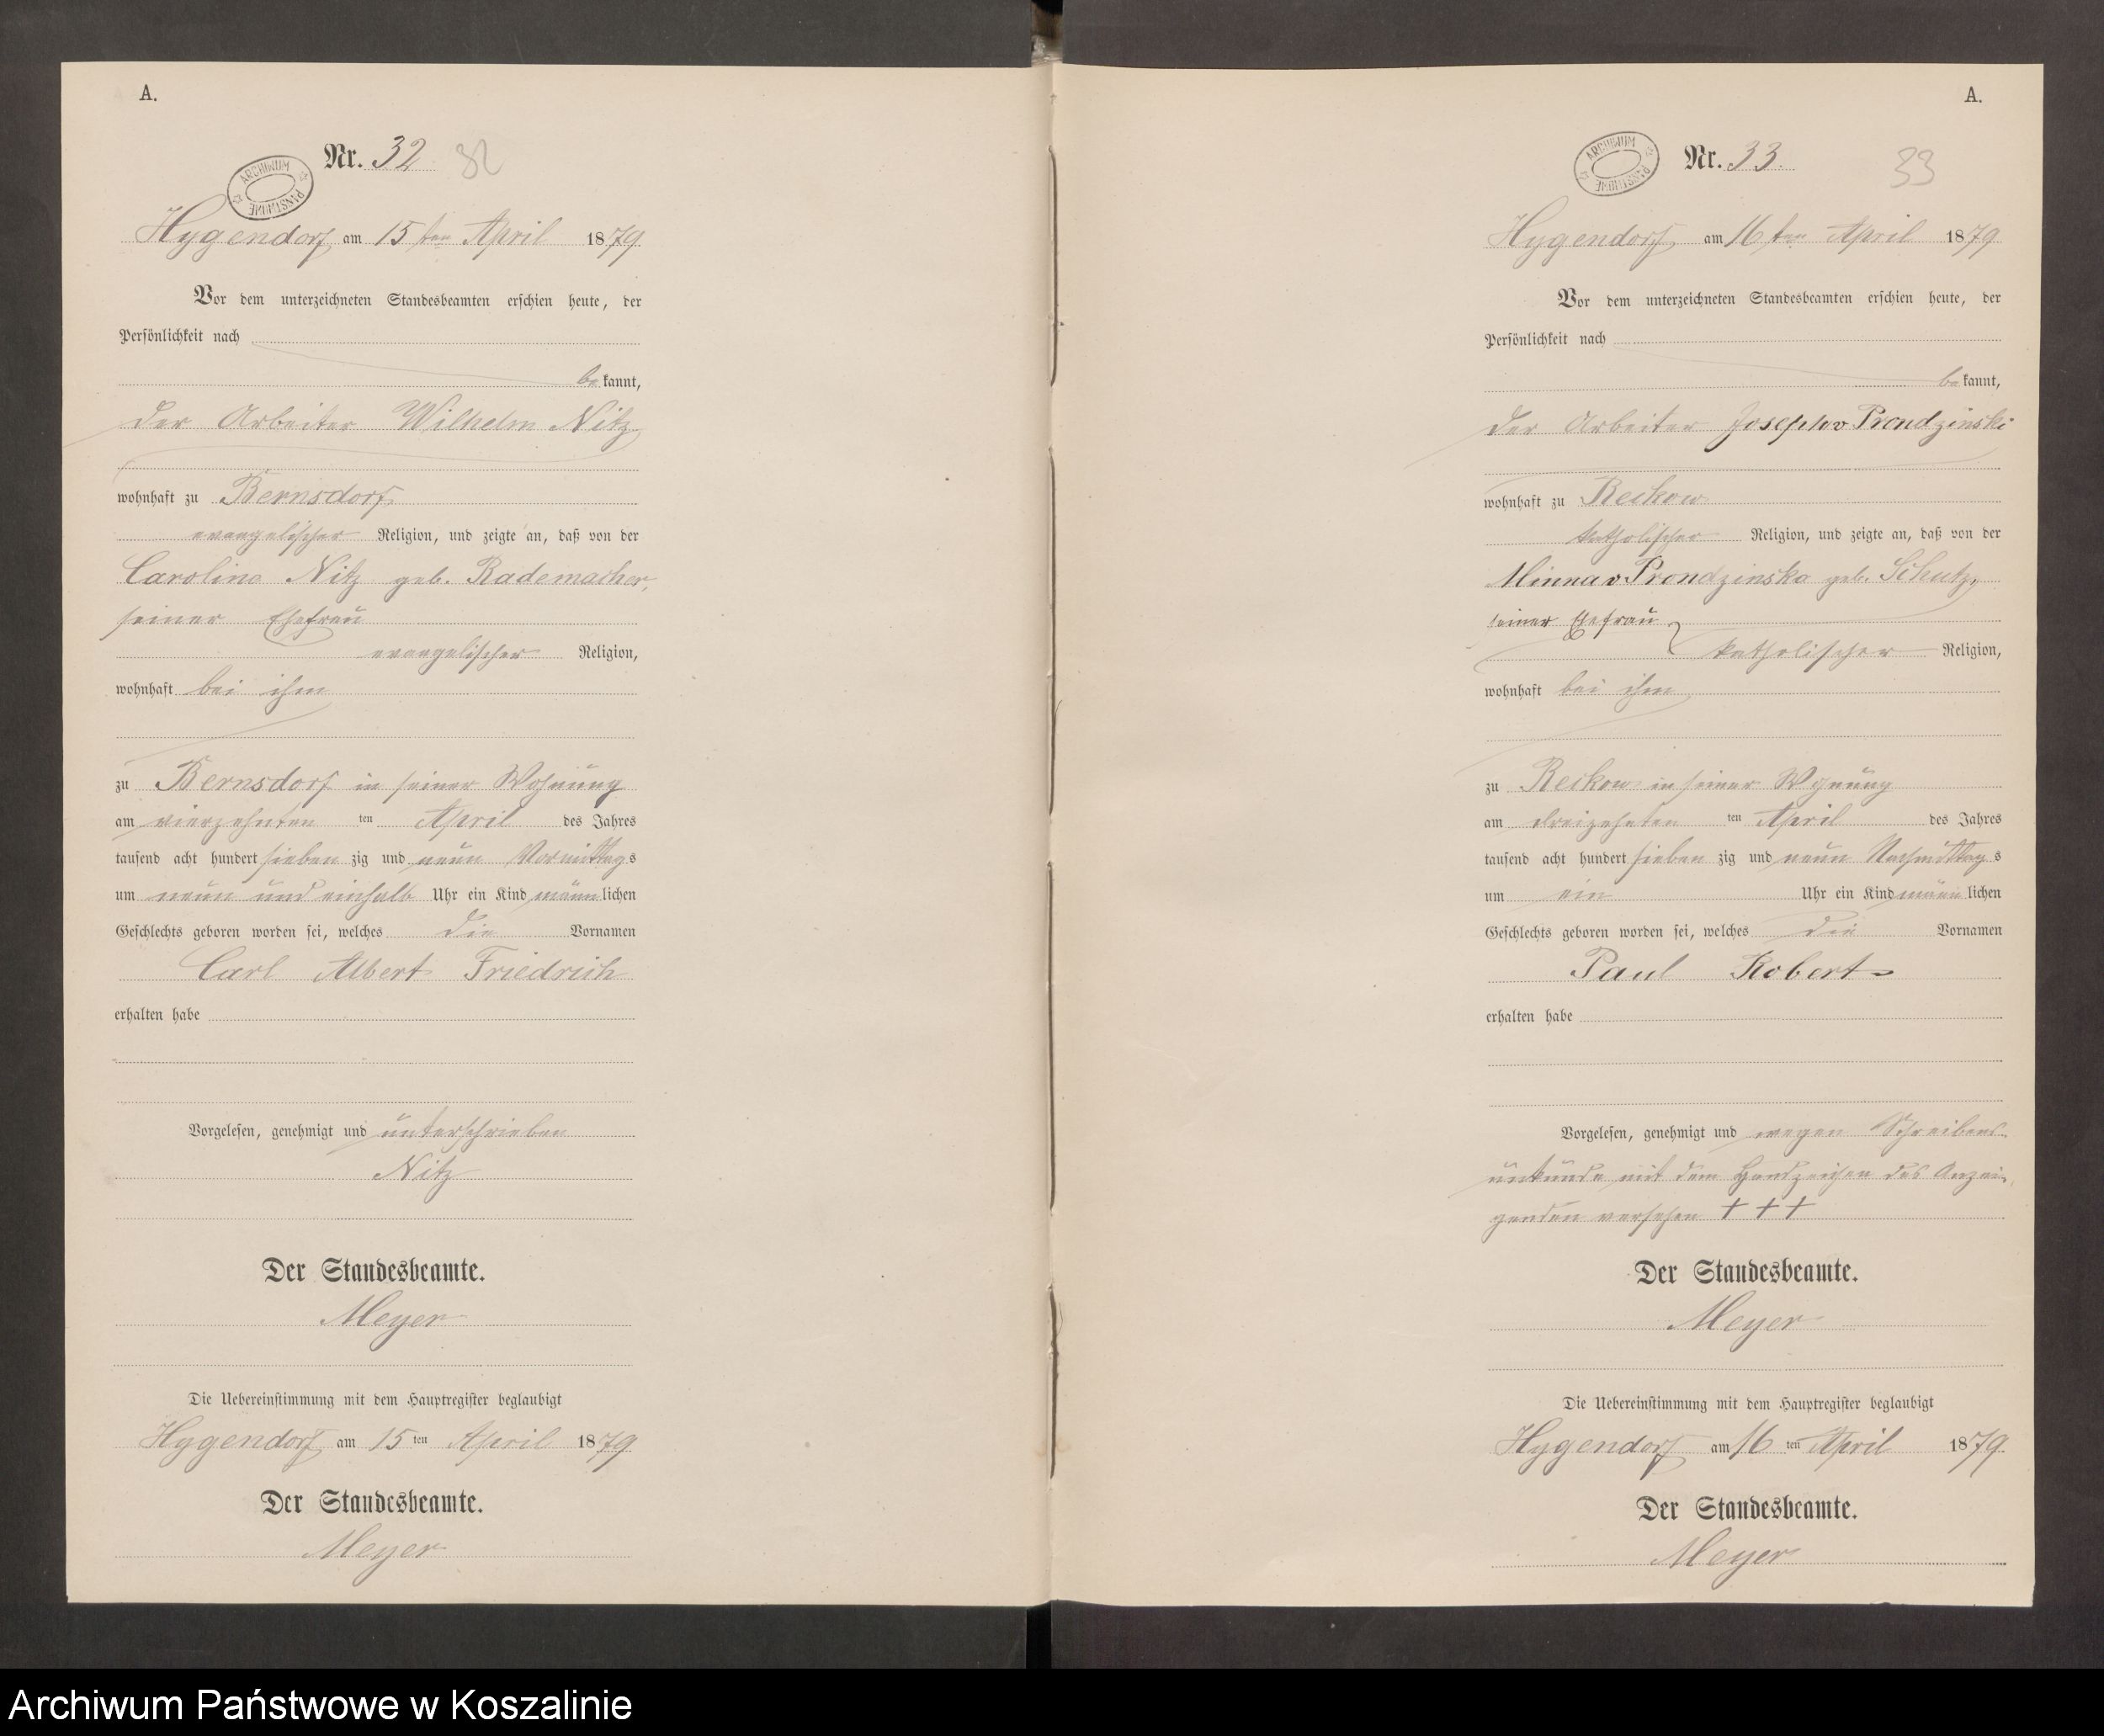 A.
Nr. 32 32
ARCHIWUM PAŃSTWOWE
Hygendorf am 15 ten April 1879
Vor dem unterzeichneten Standesbeamten erschien heute, der
Persönlichkeit nach
bekannt,
der Arbeiter Wilhelm Nitz
wohnhaft zu Bernsdorf
evangelischer Religion, und zeigte an, daß von der
Caroline Nitz geb. Rademacher,
seiner Ehefrau
evangelischer Religion,
wohnhaft bei ihm
zu Bernsdorf in seiner Wohnung
am vierzehnten ten April des Jahres
tausend acht hundert sieben zig und neun Vormittags
um neun und einhalb Uhr ein Kind männlichen
Geschlechts geboren worden sei, welches die Vornamen
Carl Albert Friedrich
erhalten habe
Vorgelesen, genehmigt und unterschrieben
Nitz
Der Standesbeamte.
Meyer
Die Uebereinstimmung mit dem Hauptregister beglaubigt
Hygendorf am 15 ten April 1879
Der Standesbeamte.
Meyer
A.
Nr. 33. 33
ARCHIWUM PAŃSTWOWE
Hygendorf am 16 ten April 1879
Vor dem unterzeichneten Standesbeamten erschien heute, der
Persönlichkeit nach
bekannt,
der Arbeiter Joseph v Prondzinski
wohnhaft zu Reckow
katholischer Religion, und zeigte an, daß von der
Minna v Prondzinska geb. Schutz,
seiner Ehefrau
katholischer Religion,
wohnhaft bei ihm
zu Reckow in seiner Wohnung
am dreizehnten ten April des Jahres
tausend acht hundert sieben zig und neun Nachmittags
um ein Uhr ein Kind männlichen
Geschlechts geboren worden sei, welches die Vornamen
Paul Robert
erhalten habe
Vorgelesen, genehmigt und wegen Schreibens-
unkunde mit dem Handzeichen des Anzei-
genden versehen + + +
Der Standesbeamte.
Meyer
Die Uebereinstimmung mit dem Hauptregister beglaubigt
Hygendorf am 16 ten April 1879.
Der Standesbeamte.
Meyer
Archiwum Państwowe w Koszalinie